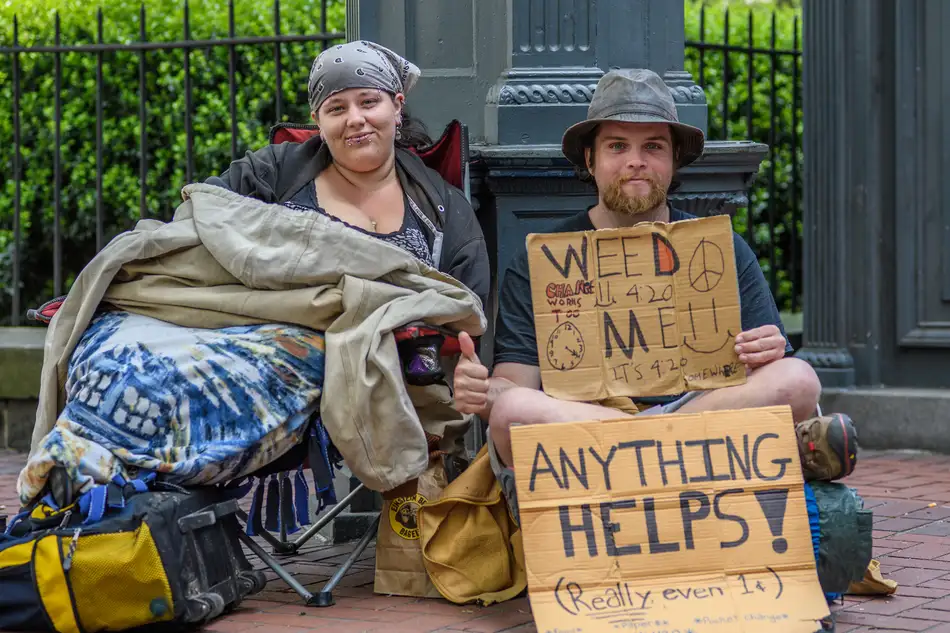 WEED
CHANGE
WORKS
TOO
4:20
ME!!
IT'S 4:20 SOMEWHERE
ANYTHING
HELPS!
(Really even 1¢)
*Paper* *Pocket change*
BAGEL